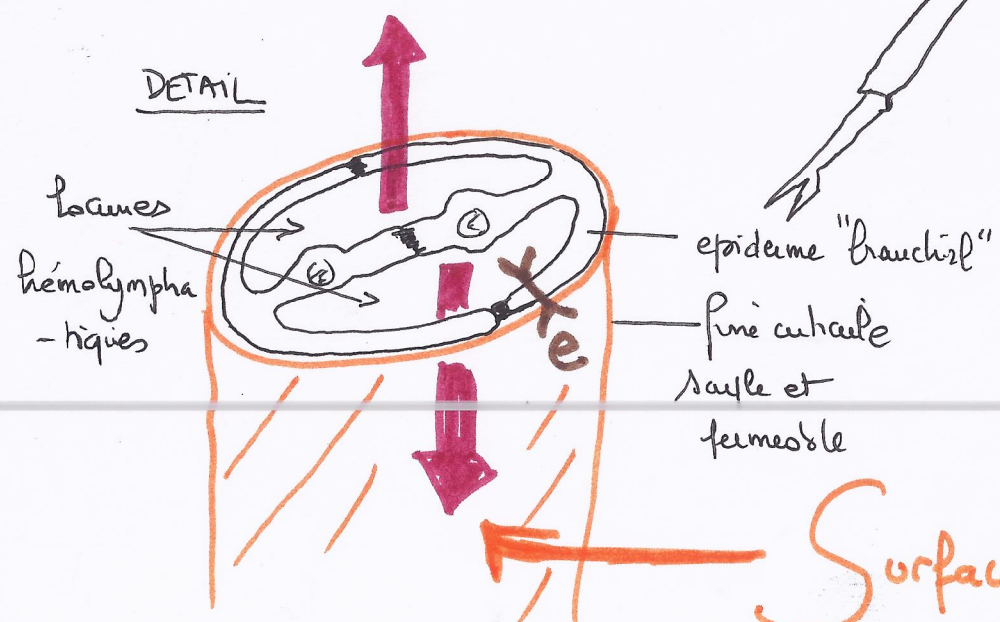 DETAIL
Lacunes
hémolympha
-tiques
epiderme "branchial"
fine cuticule
souple et
permeable
e
Surfac